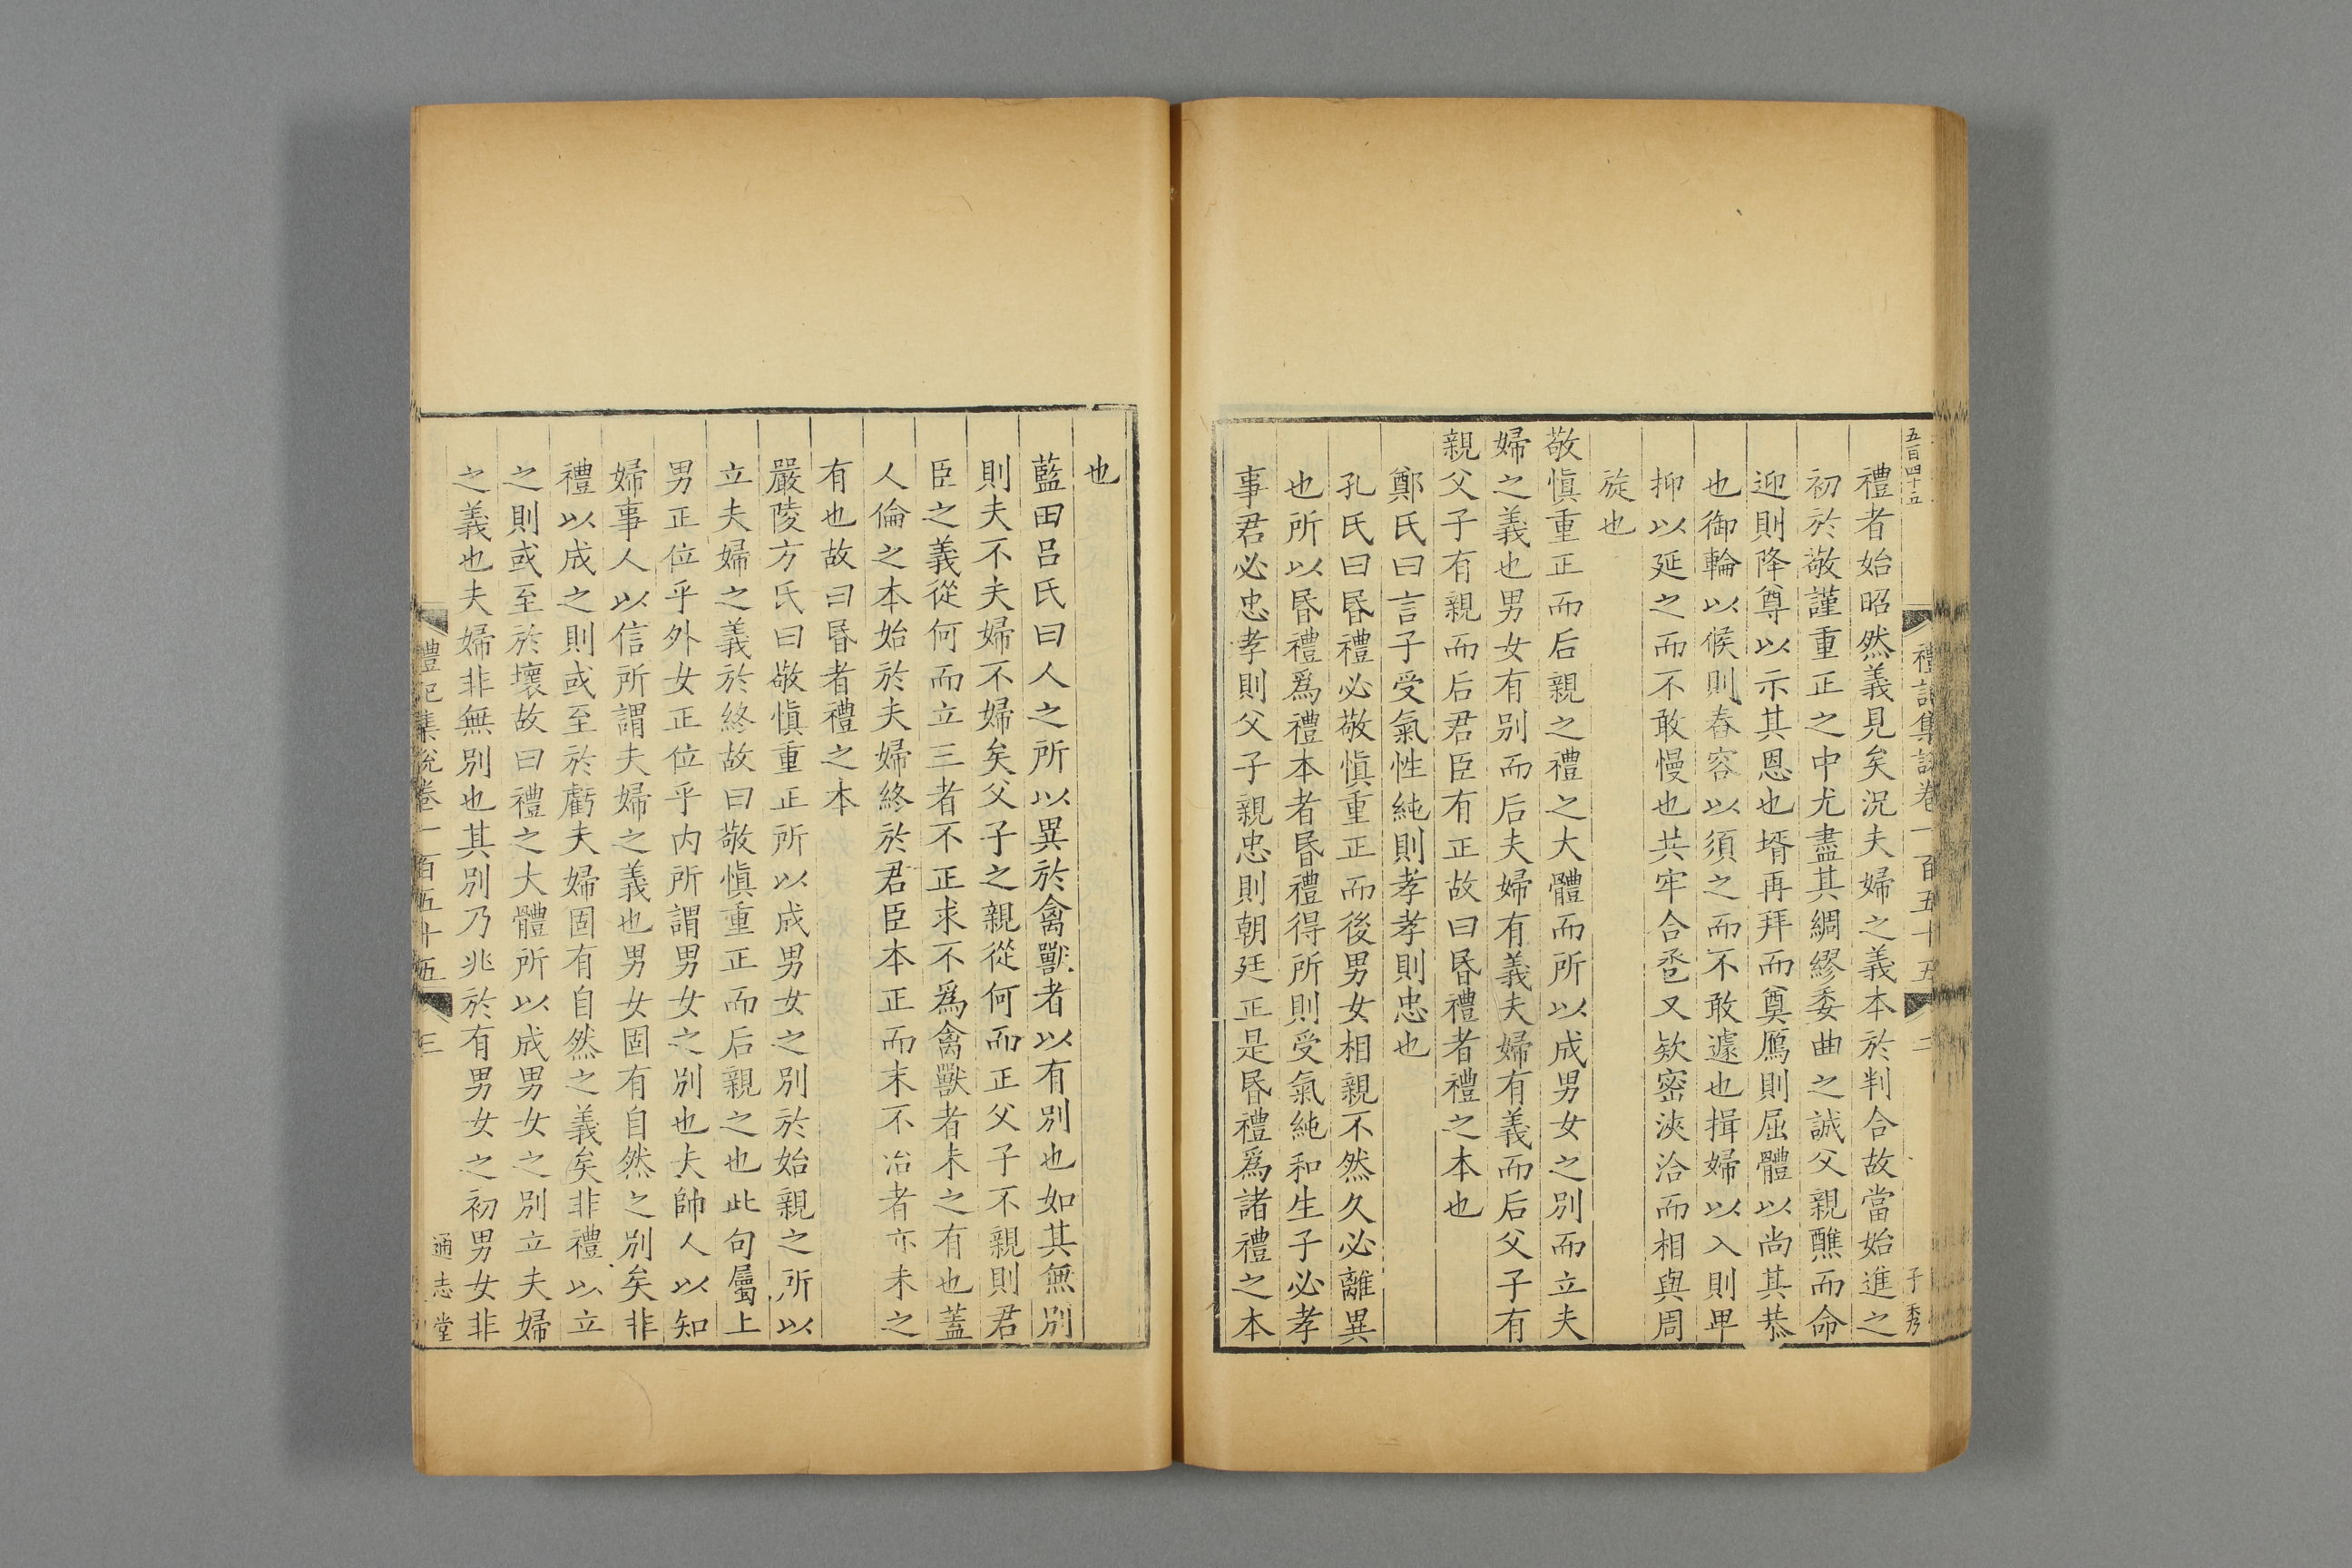 五百四十五
禮記集說卷一百五十五
二
子秀
禮者始昭然義見矣況夫婦之義本於判合故當始進之
初於敬謹重正之中尤盡其綢繆委曲之誠父親醮而命
迎則降尊以示其恩也壻再拜而奠鴈則屈體以尚其恭
也御輪以候則舂容以須之而不敢遽也揖婦以入則卑
抑以延之而不敢慢也共牢合巹又欵密浹洽而相與周
旋也
敬慎重正而后親之禮之大體而所以成男女之別而立夫
婦之義也男女有別而后夫婦有義夫婦有義而后父子有
親父子有親而后君臣有正故曰昬禮者禮之本也
鄭氏曰言子受氣性純則孝孝則忠也
孔氏曰昬禮必敬慎重正而後男女相親不然久必離異
也所以昬禮爲禮本者昬禮得所則受氣純和生子必孝
事君必忠孝則父子親忠則朝廷正是昬禮爲諸禮之本
也
藍田呂氏曰人之所以異於禽獸者以有別也如其無別
則夫不夫婦不婦矣父子之親從何而正父子不親則君
臣之義從何而立三者不正求不爲禽獸者未之有也蓋
人倫之本始於夫婦終於君臣本正而末不治者亦未之
有也故曰昬者禮之本
嚴陵方氏曰敬慎重正所以成男女之別於始親之所以
立夫婦之義於終故曰敬慎重正而后親之也此句屬上
男正位乎外女正位乎内所謂男女之別也夫帥人以知
婦事人以信所謂夫婦之義也男女固有自然之別矣非
禮以成之則或至於虧夫婦固有自然之義矣非禮以立
之則或至於壞故曰禮之大體所以成男女之別立夫婦
之義也夫婦非無別也其別乃兆於有男女之初男女非
禮記集說卷一百五十五
三
通志堂